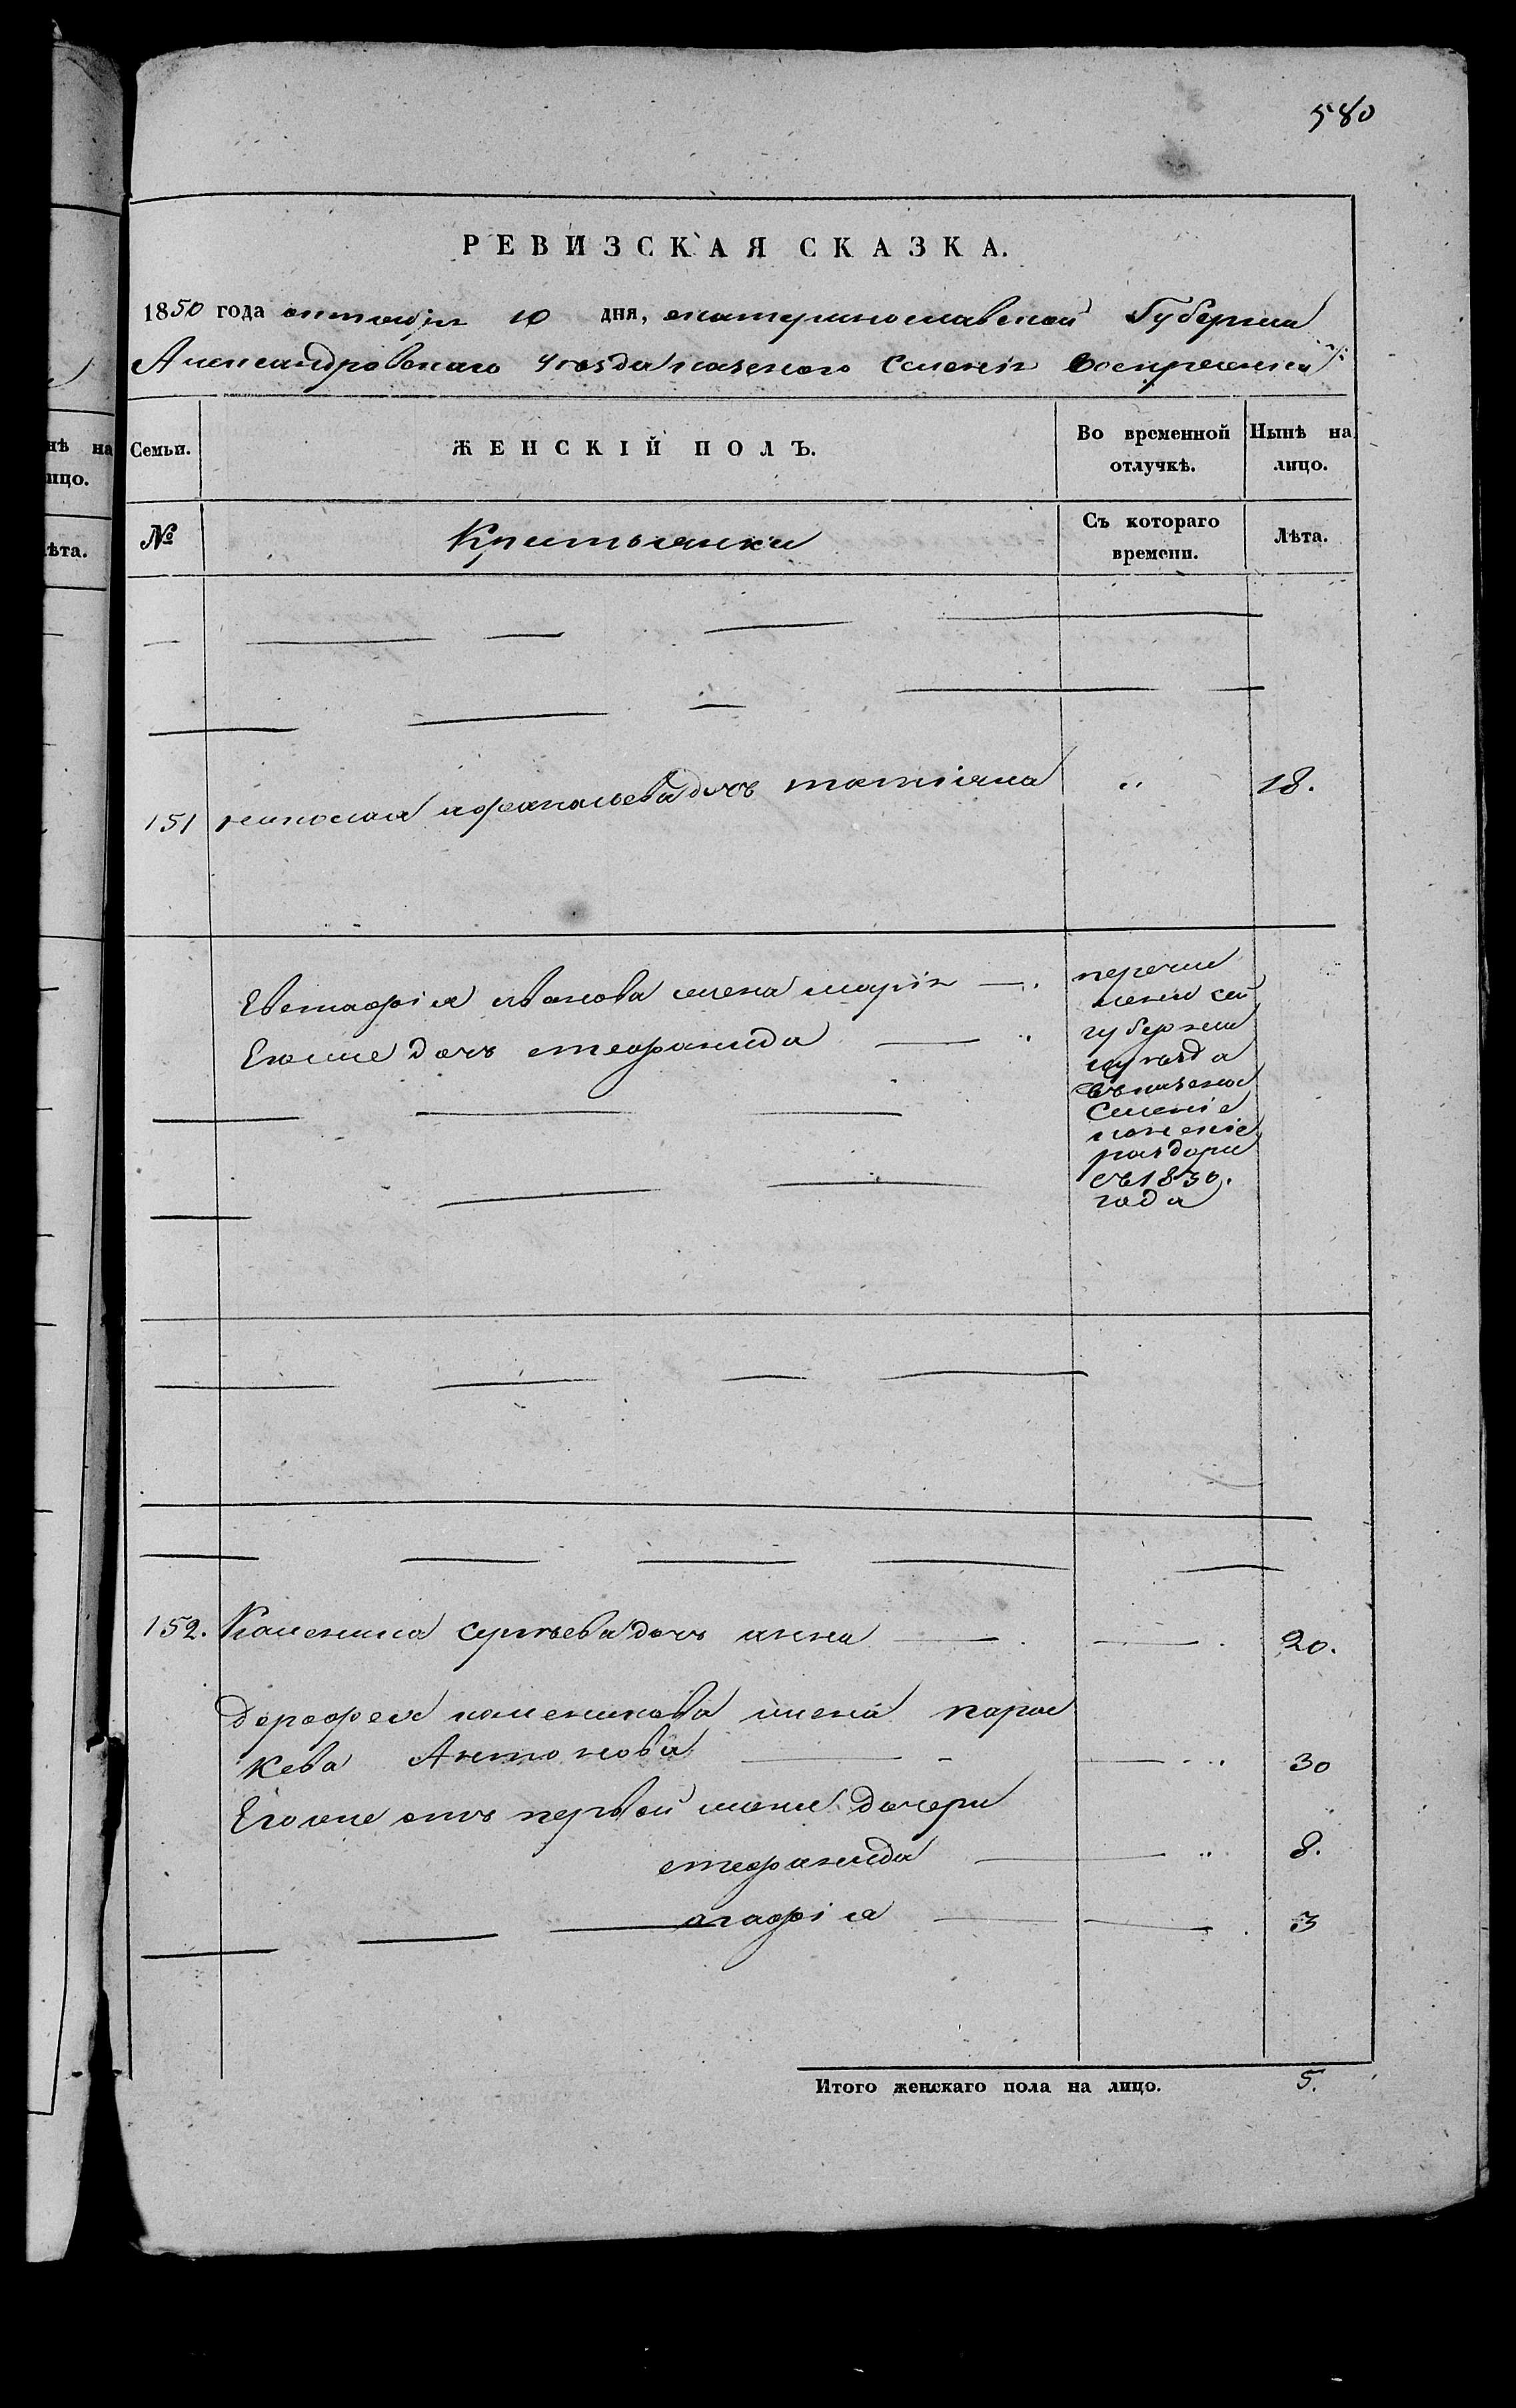 580
РЕВИЗСКАЯ СКАЗКА.
1850 года октября 10 дня, екатеринославской Губернии
Александровскаго уезда казеного Селенія Воскресенки
нѣ на
лицо.
Семьи.
ЖЕНСКІЙ ПОЛЪ.
Во временной
отлучкѣ.
Нынѣ на
лицо.
ѣта.
№
Крестьянки
Съ котораго
времени.
Лѣта.
151 афанасьева дочъ татіяна " 18.
Евстафія иванова жена марія
Егоже дочъ стефанида "
перечис
лени сей
губернии
иуезда
въказеное
Селеніе
раздори
съ1830.
года
152. Каленика сергѣева дочъ анна 20.
дорофея каленикова жена парас
кева Антонова 30
Егоже отъ первой жени дочери
стефанида " 8.
агафія 3
Итого женскаго пола на лицо. 5.